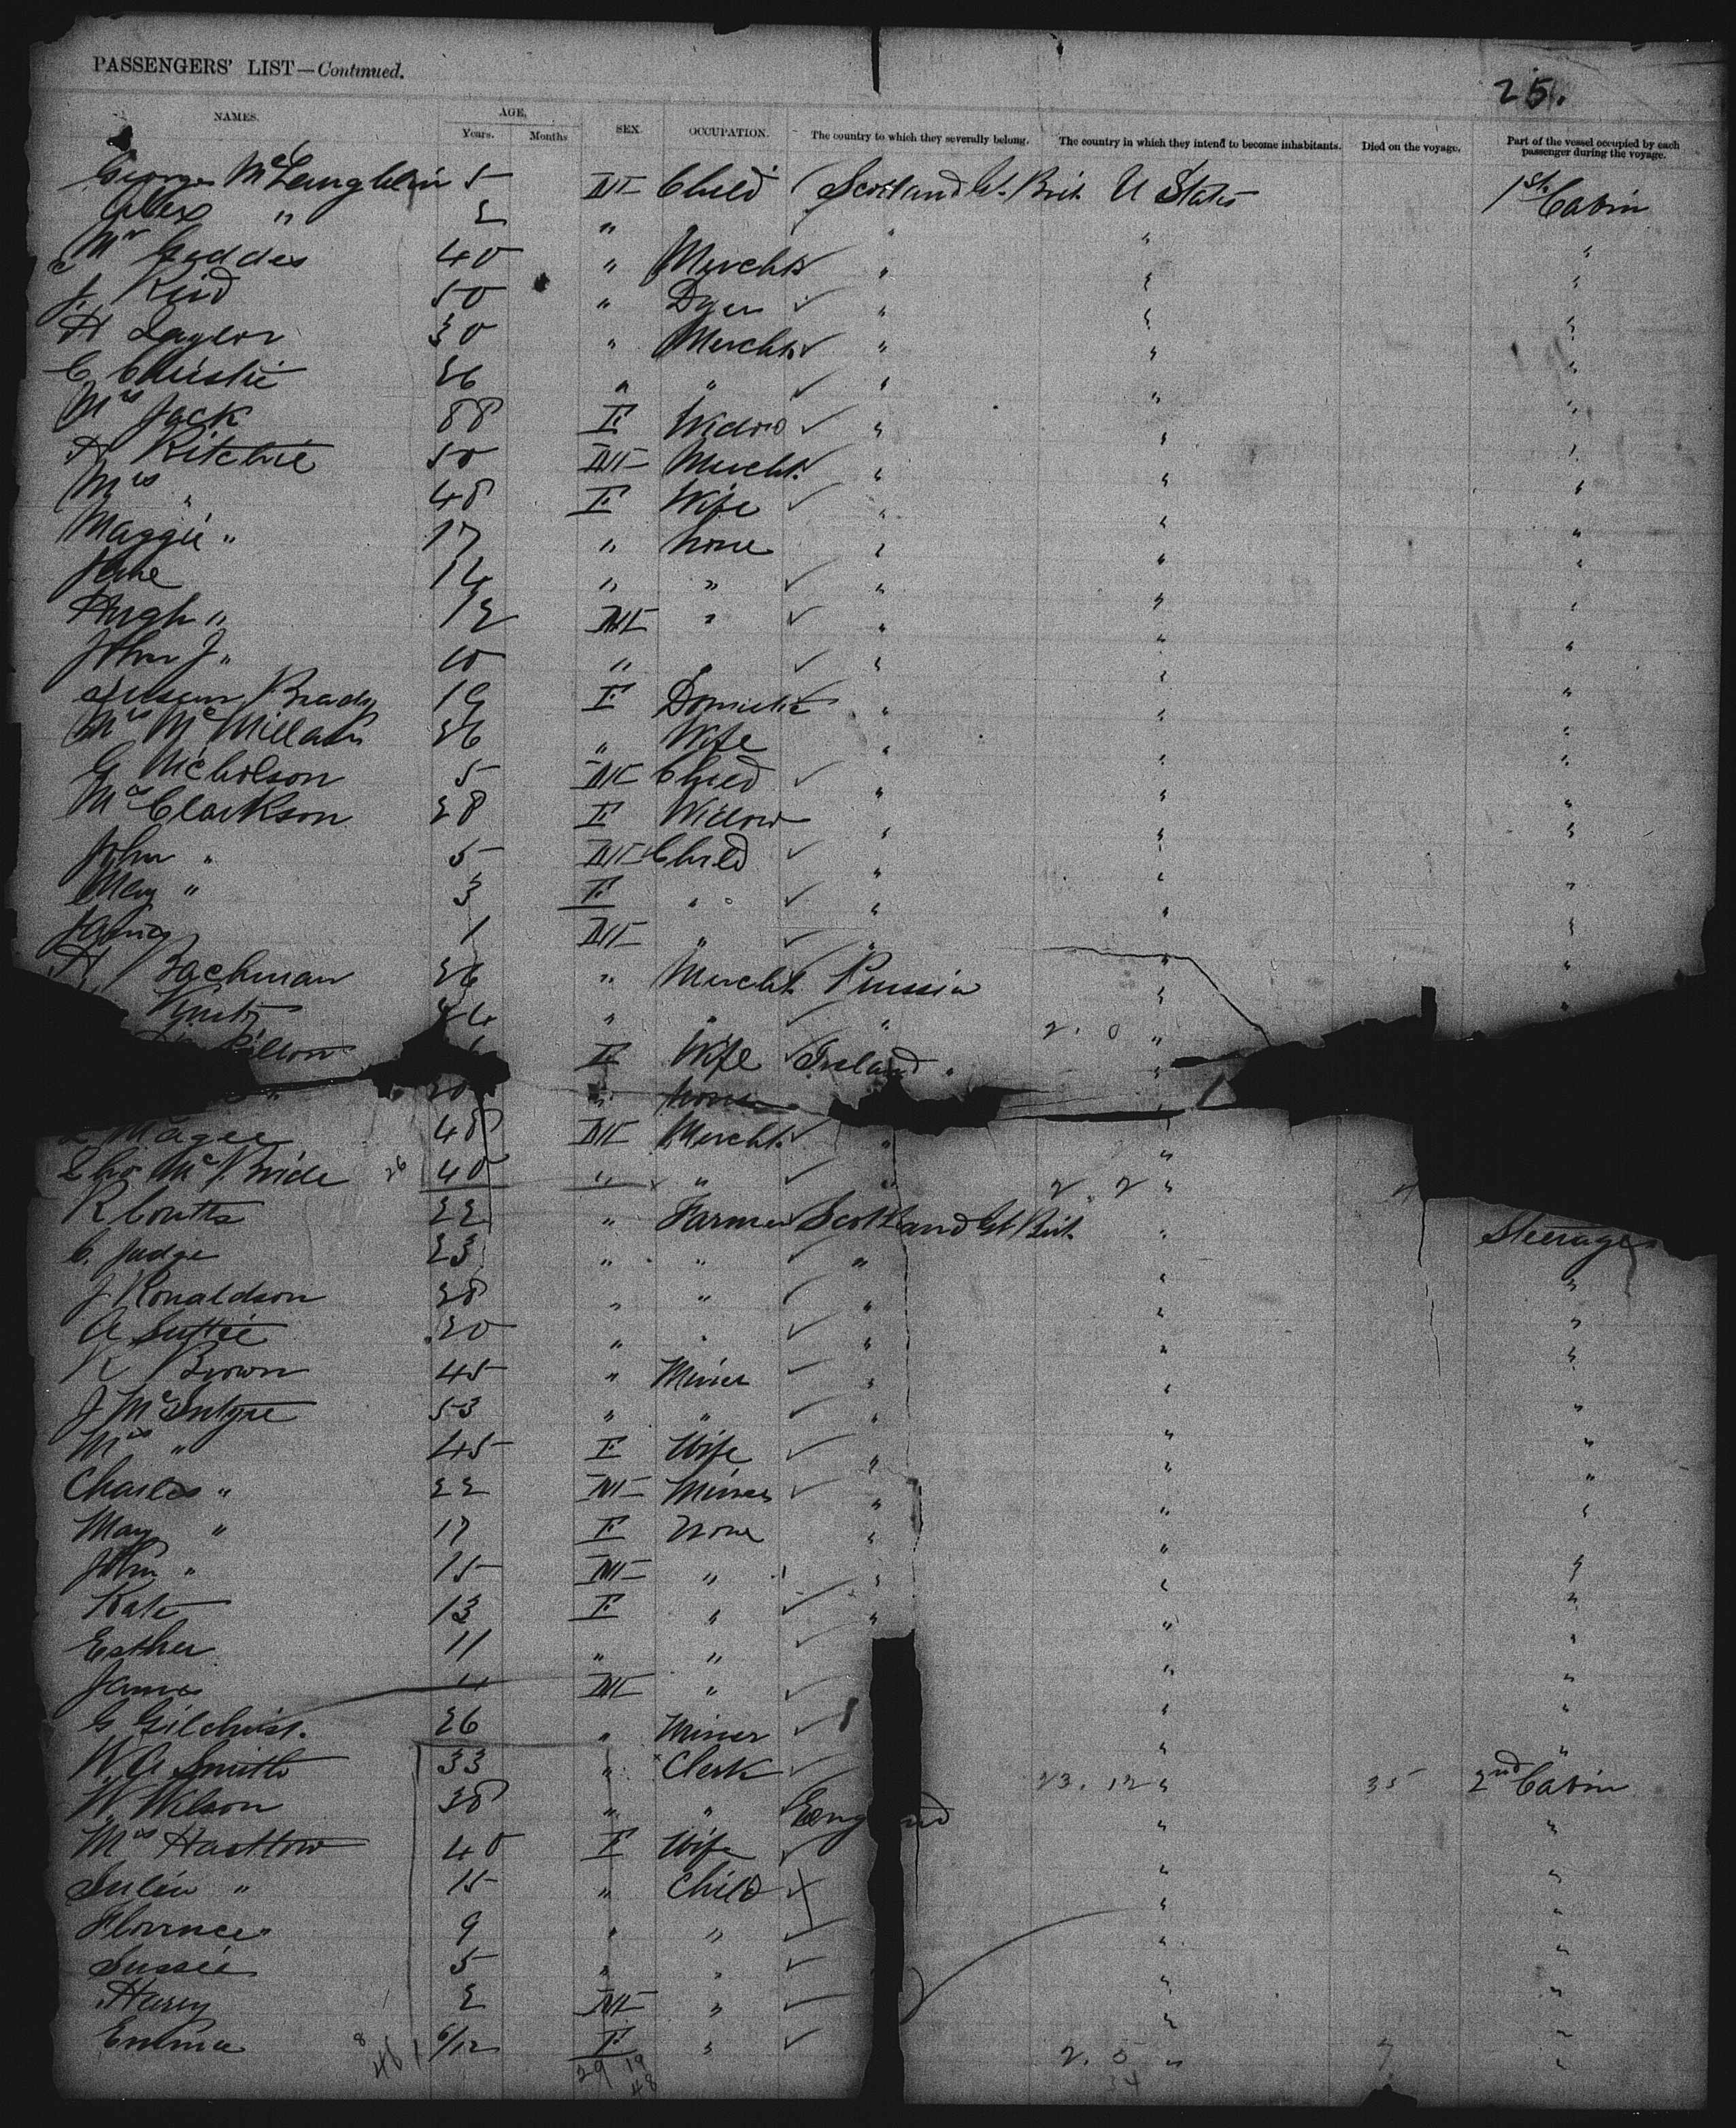 PASSENGERS' LIST—Continued.
25.
NAMES. AGE, Years. Months SEX. OCCUPATION. The country to which they severally belong. The country in which they intend to become inhabitants. Died on the voyage. Part of the vessel occupied by each passenger during the voyage.
George McLaughlin 5 M Child Scotland Gt. Brit U States 1st Cabin
Alex " 2 " " " "
Mr Geddes 40 " Mercht " " "
J. Reid 50 " Dyer " " "
H Taylor 30 " Mercht " " "
C Christie 26 " " " " "
Mrs Jack 58 F Widow " " "
A Ritchie 50 M Mercht " " "
Mrs " 48 F Wife " " "
Maggie " 17 " none " " "
Jane 14 " " " " "
Hugh " 12 M " " " "
John J " 10 " " " " "
Susan Brady 19 F Domestic " " "
Mrs McMillan 26 " Wife " " "
G Nicholson 5 M Child " " "
Mrs Clarkson 28 F Widow " " "
John " 5 M Child " " "
May " 3 F " " " "
James 1 M " " " "
H Bachman 26 " Mercht Prussia " "
24 " " " 2.0 " "
F Wife Ireland "
20 " none "
Magee 48 M Mercht " "
Tho McBride 26 40 " " " 2.2 "
R Coutts 22 " Farmer Scotland Gt Brit. " Steerage
C. Judge 23 " " " " "
J Ronaldson 28 " " " " "
A Suttie 20 " " " " "
R Brown 45 " Miner " " "
J McIntyre 53 " " " " "
Mrs " 45 F Wife " " "
Charles " 22 M Miner " " "
May " 17 F None " " "
John " 15 M " " " "
Kate 13 F " " " "
Esther 11 " " " "
James M " " "
G Gilchrist. 26 " Miner " "
W. A Smith 33 " Clerk 23. 12 " 35 2nd Cabin
W. Wilson 38 " " England " "
Mrs 40 F Wife " "
15 " Child " "
Florence 9 " " " "
Sussie 5 " " " "
Harry 2 M " " "
Emma 6/12 F " 2. 5 " 7 "
8 461 29 19 34
48